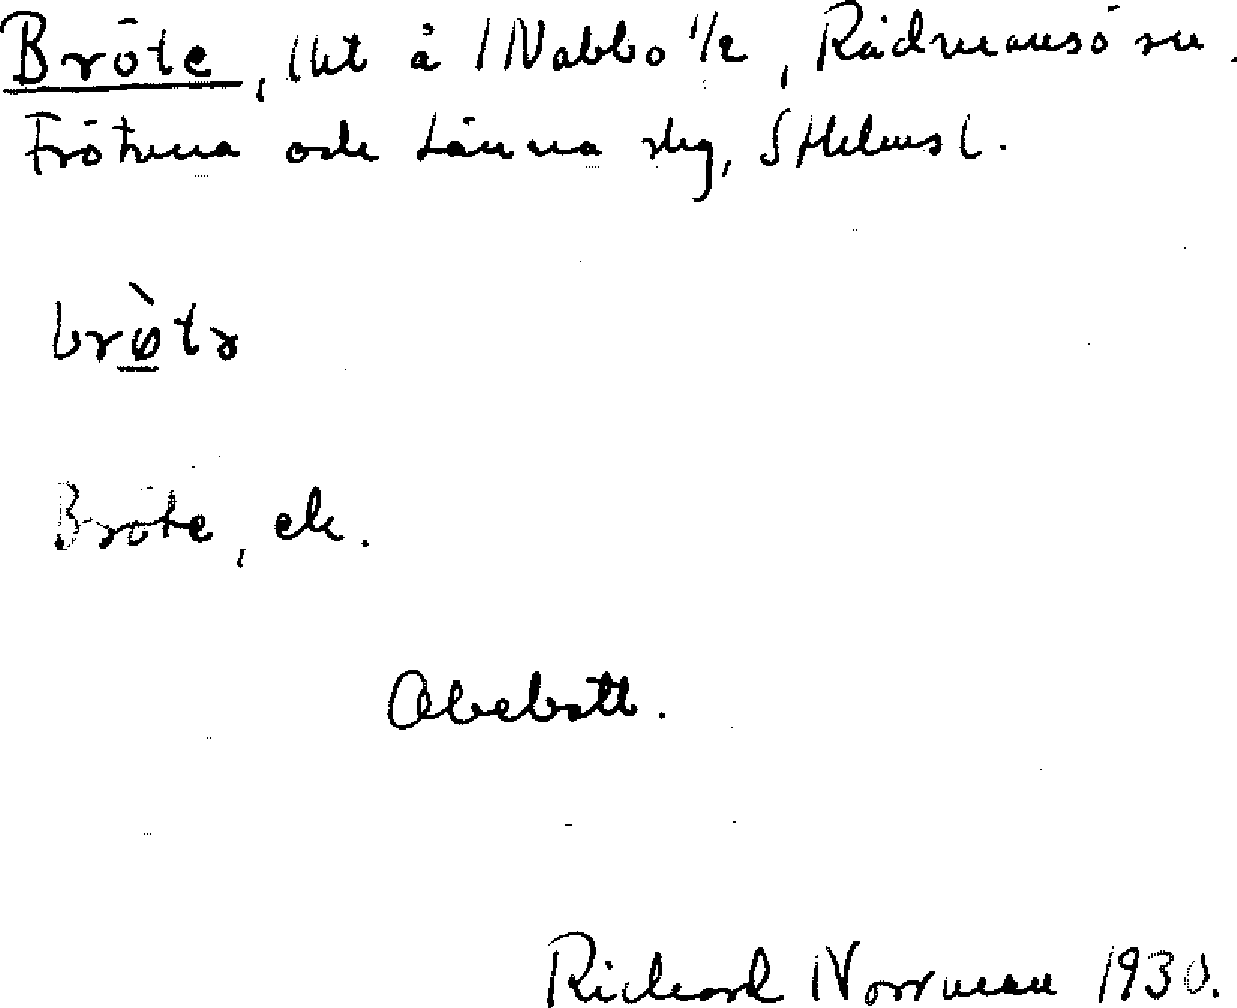 Bröte, lht å Nabbo 1/2, Rådmansö sn.
Frötuna och Länna slg, Sthlms l.
brø̀tə
Bröte, ek.
Obebott.
Richard Norrman 1930.